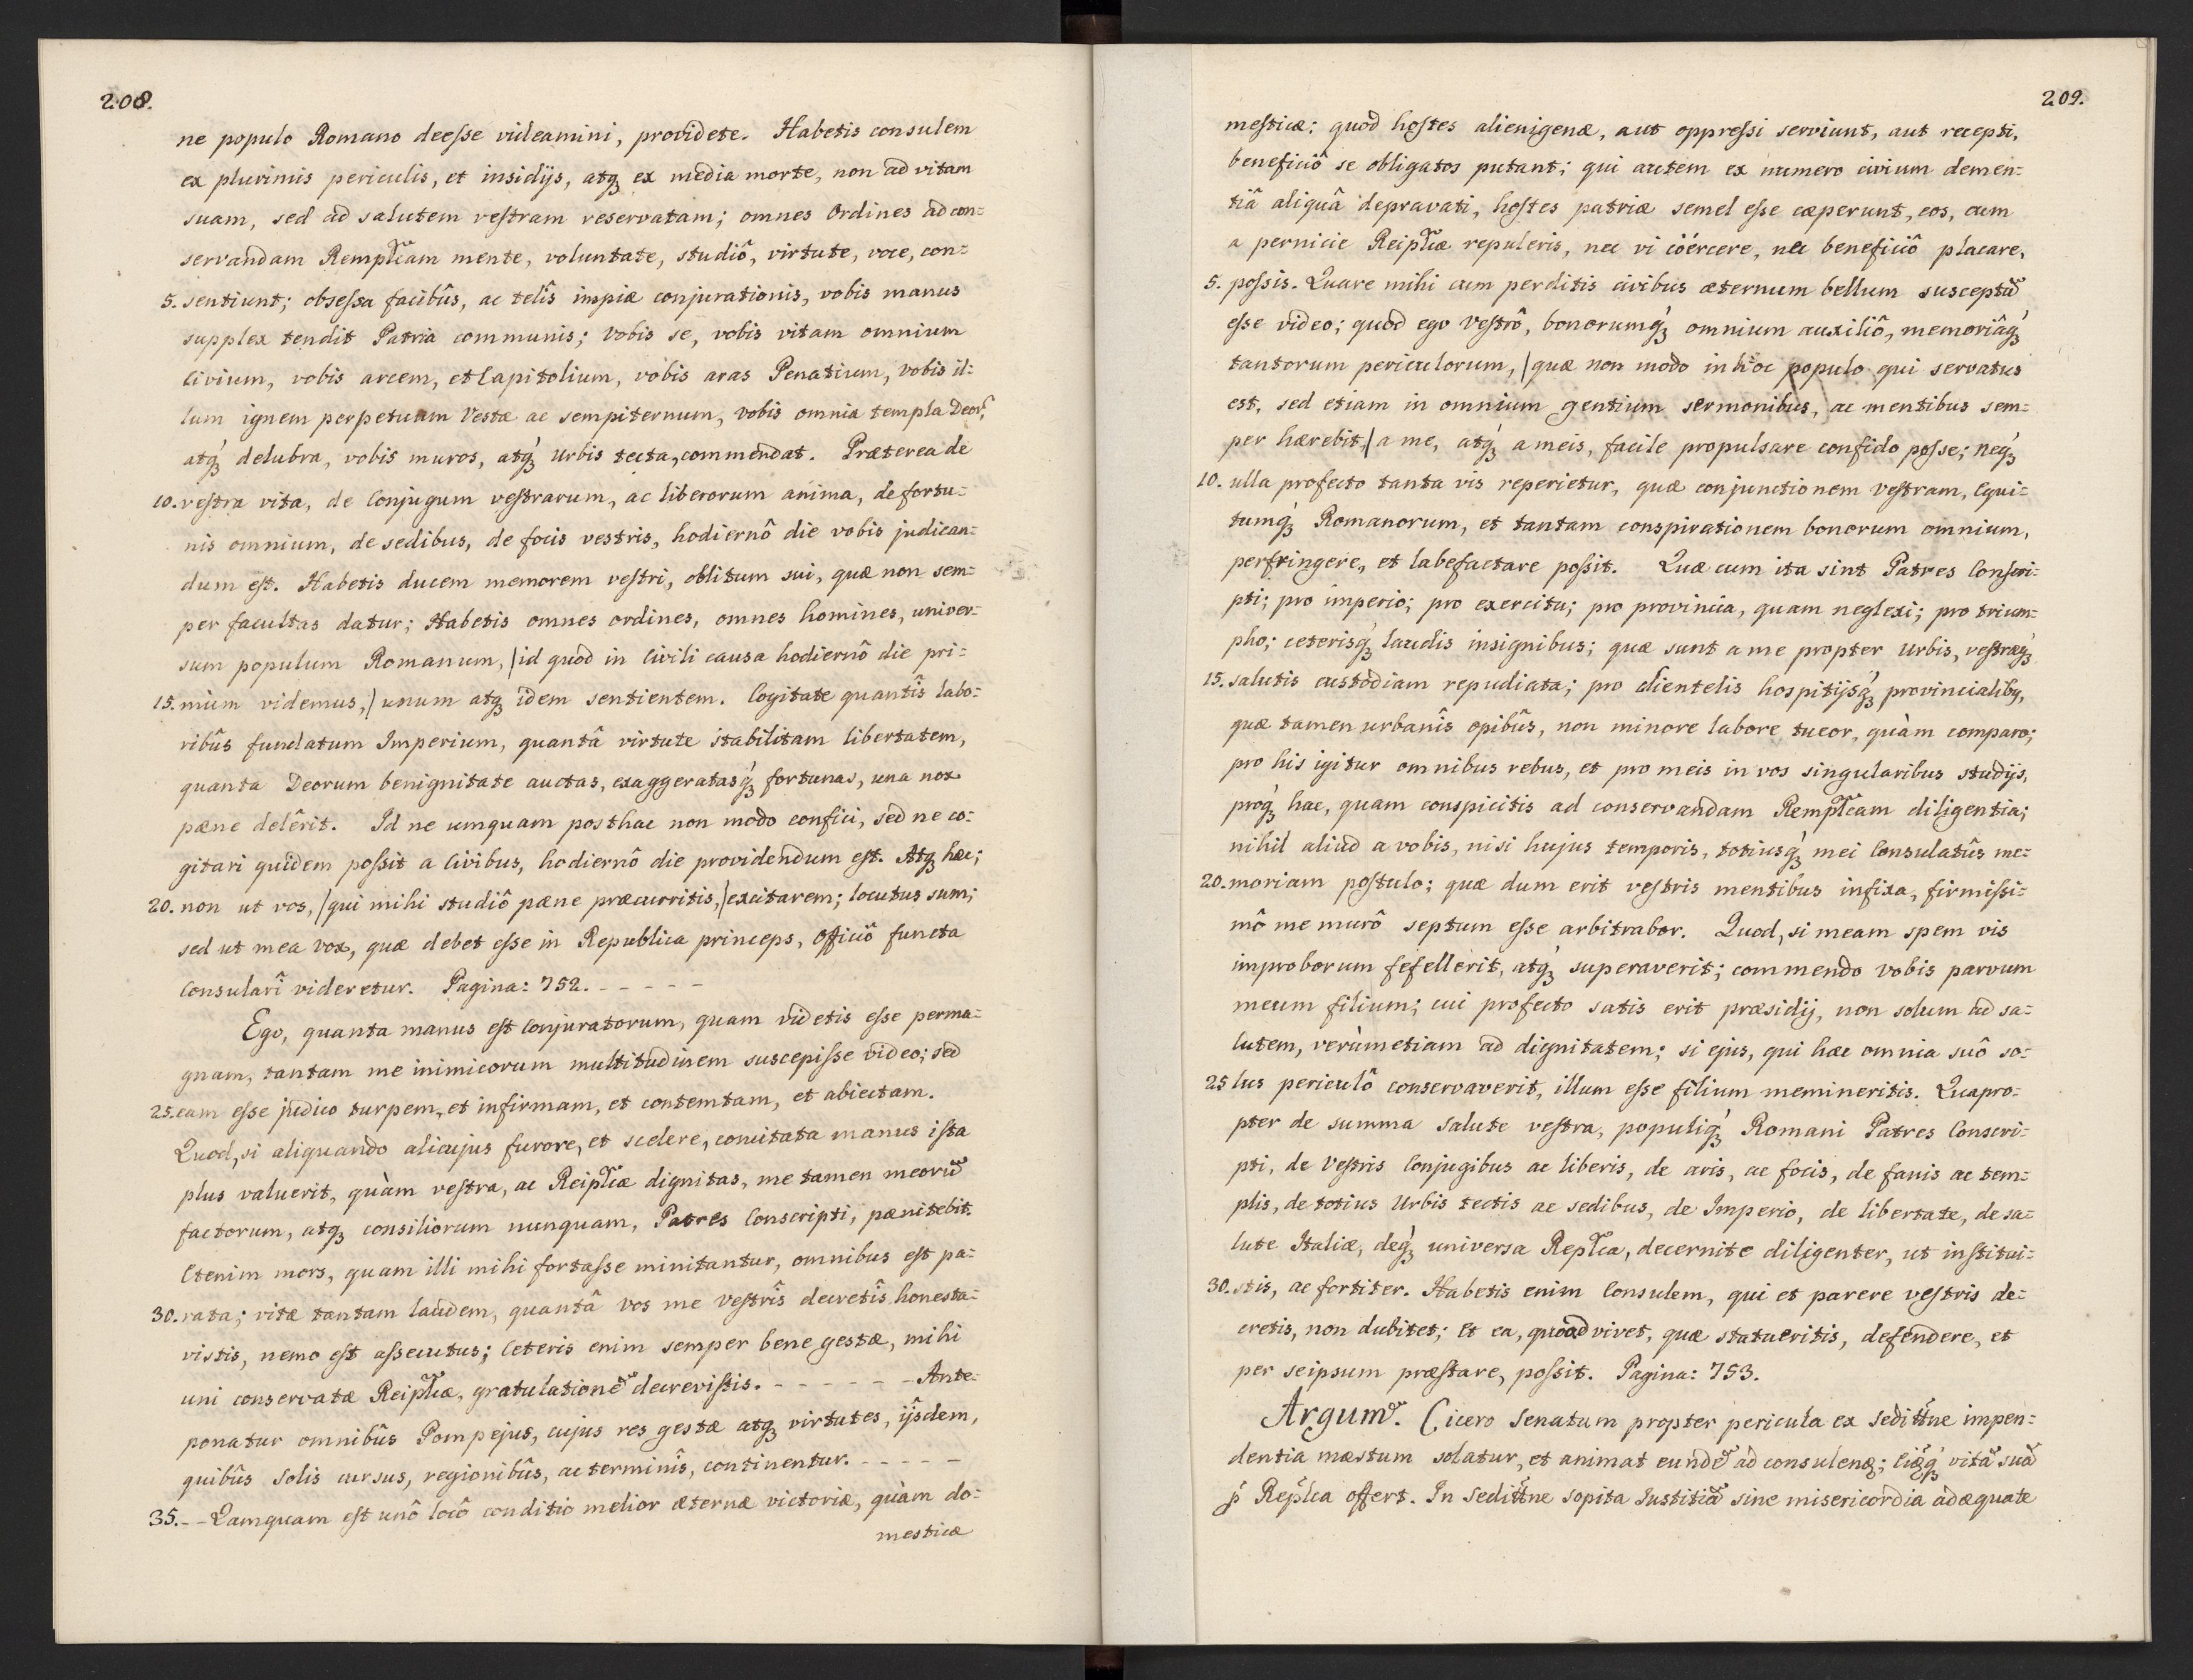 208.
ne populo Romano deeſse videamini, providete. Habetis consulem
ex plurimis periculis, et insidijs, atqꝫ ex media morte, non ad vitam
suam, sed ad salutem veſtram reservatam; omnes Ordines ad con=
servandam Remplcam mente, voluntate, studiô, virtute, voce, con=
5. sentiunt; obseſsa facibûs, ac telîs impiæ conjurationis, vobis manus
supplex tendit Patria communis; vobis se, vobis vitam omnium
Civium, vobis arcem, et Capitolium, vobis aras Penatium, vobis il=
lum ignem perpetuam Vestæ ac sempiternum, vobis omnia templa Deor,
atqꝫ delubra, vobis muros, atqꝫ Urbis tecta, commendat. Præterea de
10. veſtra vita, de Conjugum veſtrarum, ac liberorum anima, de fortu=
nis omnium, de sedibus, de focis vestris, hodiernô die vobis judican=
dum eſt. Habetis ducem memorem veſtri, oblitum sui, quæ non sem=
per facultas datur; Habetis omnes ordines, omnes homines, univer=
sum populum Romanum, |id quod in Civili causa hodiernô die pri=
15. mùm videmus,| unum atqꝫ idem sentientem. Cogitate quantîs labo=
ribûs fundatum Imperium, quantâ virtute stabilitam libertatem,
quanta Deorum benignitate auctas, exaggeratasqꝫ fortunas, una nox
pæne delêrit. Id ne umquam posthac non modo confici, sed ne co=
gitari quidem poſsit a Civibus, hodiernô die providendum eſt. Atqꝫ hæc;
20. non ut vos, |qui mihi studiô pæne præcurritis,| excitarem; locutus sum;
sed ut mea vox, quæ debet eſse in Republica princeps, Officiô functa
Consularî videretur. Pagina: 752. - - - - -
Ego, quanta manus eſt Conjuratorum, quam videtis eſse perma=
gnam, tantam me inimicorum multitudinem suscepiſse video; sed
25. eam eſse judico turpem, et infirmam, et contemtam, et abiectam.
Quod, si aliquando alicujus furore, et scelere, concitata manus iſta
plus valuerit, quàm veſtra, ac Reiplcæ dignitas, me tamen meorū
factorum, atqꝫ consiliorum nunquam, Patres Conscripti, pænitebit.
Etenim mors, quam illi mihi fortaſse minitantur, omnibus est pa=
30. rata; vitæ tantam laudem, quantâ vos me veſtrîs decretîs honesta=
vistis, nemo eſt aſsecutus; Ceteris enim semper bene gestæ, mihi
uni conservatæ Reiplcæ, gratulationē decreviſtis. - - - - - - Ante=
ponatur omnibûs Pompejus, cujus res gestæ atqꝫ virtutes, ijsdem,
quibûs Solis cursus, regionibûs, ac terminîs, continentur. - - - - -
35. - - Qamquam eſt unô locô conditio melior æternæ victoriæ, quàm do=
mesticæ
209.
meſticæ; quod hoſtes alienigenæ, aut oppreſsi serviunt, aut recepti,
beneficiô se obligatos putant; qui autem ex numero civium demen=
tiâ aliquâ depravati, hoſtes patriæ semel eſse cæperunt, eos, cum
a pernicie Reiplcæ repuleris, nec vi cöércere, nec beneficiô placare,
5. poſsis. Quare mihi cum perditis civibus æternum bellum susceptū
eſse video; quod ego Veſtrô, bonorumqꝫ omnium auxiliô, memoriâqꝫ
tantorum periculorum, |quæ non modo in hoc populo qui servatus
est, sed etiam in omnium gentium sermonibus, ac mentibus sem=
per hærebit,| a me, atqꝫ a meis, facile propulsare confido poſse; neqꝫ
10. ulla profecto tanta vis reperietur, quæ conjunctionem veſtram, Equi=
tumqꝫ Romanorum, et tantam conspirationem bonorum omnium,
perfringere, et labefactare poſsit. Quæ cum ita sint Patres Conſcri=
pti; pro imperio; pro exercitu; pro provincia, quam neglexi; pro trium=
pho; ceterisqꝫ laudis insignibus; quæ sunt a me propter Urbis, veſtræqꝫ
15. salutis custodiam repudiata; pro clientelis hospitijsqꝫ provincialibꝰ,
quæ tamen urbanîs opibûs, non minore labore tueor, quàm comparo;
pro his igitur omnibus rebus, et pro meis in vos singularibus studijs,
proqꝫ hac, quam conspicitis ad conservandam Remplcam diligentia;
nihil aliud a vobis, nisi hujus temporis, totiusqꝫ mei Consulatûs me=
20. moriam poſtulo; quæ dum erit veſtris mentibus infixa, firmiſsi=
mô me murô septum eſse arbitrabor. Quod, si meam spem vis
improborum fefellerit, atqꝫ superaverit; commendo vobis parvum
meum filium; cui profecto satis erit præsidij, non solum ad sa=
lutem, verùm etiam ad dignitatem; si ejus, qui hæc omnia suô so=
25 lus periculô conservaverit, illum eſse filium memineritis. Quapro=
pter de summa salute veſtra, populiqꝫ Romani Patres Conscri=
pti, de Veſtris Conjugibus ac liberis, de aris, ac focis, de fanis ac tem=
plis, de totius Urbis tectis ac sedibus, de Imperio, de libertate, de sa=
lute Italiæ, deqꝫ universa Replca, decernite diligenter, ut inſtitui=
30. stis, ac fortiter. Habetis enim Consulem, qui et parere veſtris de=
cretis, non dubitet; Et ea, quoad vivet, quæ statueritis, defendere, et
per seipsum præſtare, poſsit. Pagina: 753.
Argum. Cicero Senatum propter pericula ex seditne impen=
dentia mæstum solatur, et animat eundē ad consulenꝫ; vitā suā
p Replca offert. In seditne sopita Iustitiā sine misericordia adæquate